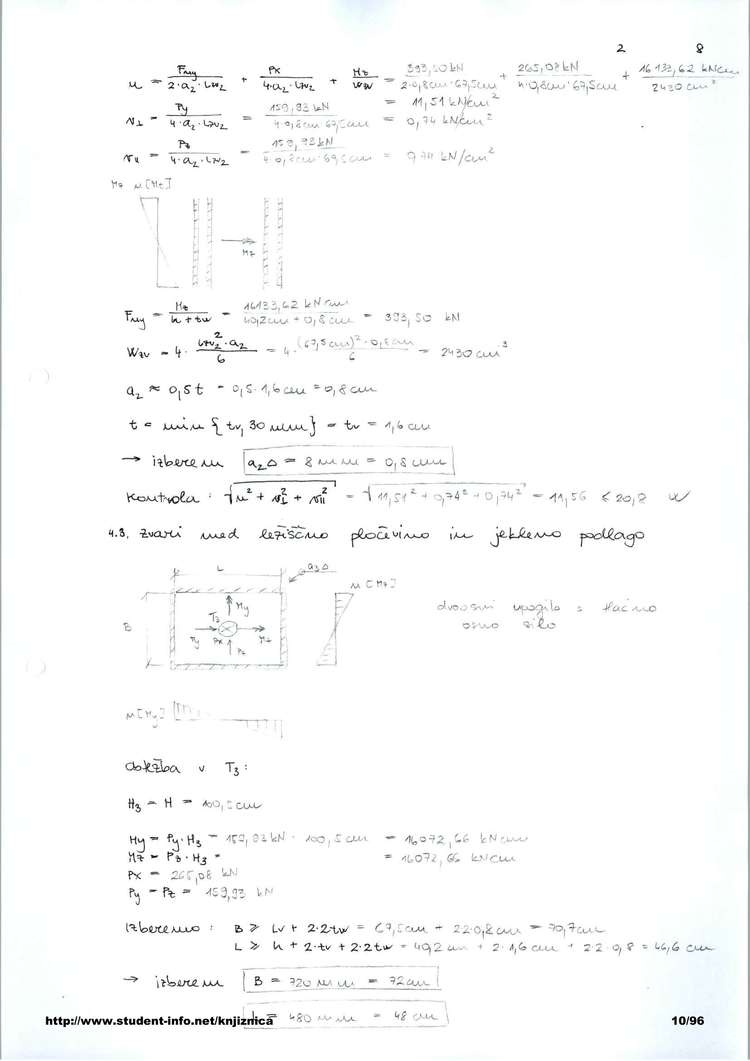 2 8
n = Fmy / 2·a₂·Lw₂ + Px / 4·a₂·Lw₂ + Mz / Ww = 393,50 kN / 2·0,8cm·67,5cm + 265,08 kN / 4·0,8cm·67,5cm + 16133,62 kNcm / 2430 cm³
= 11,51 kN/cm²
v⊥ = Py / 4·a₂·Lw₂ = 159,93 kN / 4·0,8cm·67,5cm = 0,74 kN/cm²
v∥ = Pz / 4·a₂·Lw₂ = 159,93 kN / 4·0,8cm·67,5cm = 0,74 kN/cm²
Mz n[Mz]
Mz
Fmy = Mz / h + tw = 16133,62 kNcm / 40,2cm + 0,8cm = 393,50 kN
Ww = 4 · Lw₂²·a₂ / 6 = 4 · (67,5cm)²·0,8cm / 6 = 2430 cm³
a₂ ≈ 0,5t = 0,5·1,6cm = 0,8cm
t = min {tv, 30mm} = tv = 1,6cm
→ izberem a₂△ = 8mm = 0,8cm
kontrola : √n² + v⊥² + v∥² = √11,51² + 0,74² + 0,74² = 11,56 ≤ 20,8
4.3. zvari med ležiščno pločevino in jekleno podlago
L a₃△
n[Mz]
dvoosni upogib s tlačno
osno silo
B T₃ My Py Px Mz Pz
n[My]
obtežba v T₃ :
H₃ = H = 100,5cm
My = Py·H₃ = 159,93 kN · 100,5cm = 16072,66 kNcm
Mz = Pz·H₃ = = 16072,66 kNcm
Px = 265,08 kN
Py = Pz = 159,93 kN
Izberemo : B ≥ Lv + 2·2tw = 67,5cm + 2·2·0,8cm = 70,7cm
L ≥ h + 2·tv + 2·2tw = 40,2cm + 2·1,6cm + 2·2·0,8 = 46,6cm
→ izberem B = 720mm = 72cm
L = 480mm = 48cm
http://www.student-info.net/knjiznica 10/96